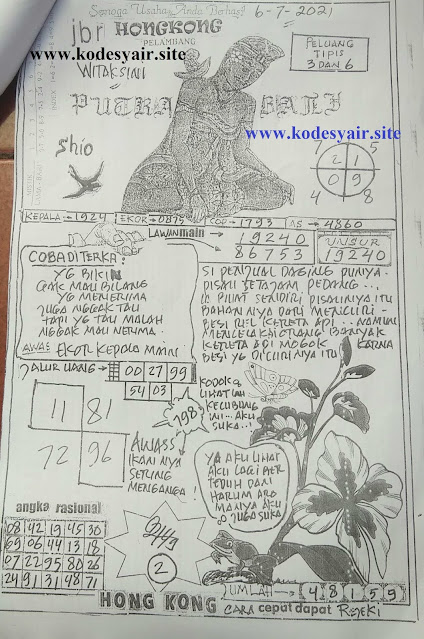 Semoga Usaha Anda Berhasil
6-7-2021
jbr HONGKONG
PELAMBANG
www.kodesyair.site
WITAKSINI
PELUANG
TIPIS
3 DAN 6
PUTRA BALI
www.kodesyair.site
Shio
7 5
2 1
0 9
4 8
KEPALA → 1924 EKOR → 0875 COP → 1793 AS → 4860
LAWAN MAIN → 19240
86753
UNSUR
19240
COBA DITERKA:
YG BIKIN
GAK MAU BILANG
YG MENERIMA
JUGA NGGAK TAU
TAPI YG TAU MALAH
NGGAK MAU NERIMA.
AWAS EKOR KEPALA MAIN
SI PENJUAL DAGING PUNYA
PISAU SETAJAM PEDANG...
IA BUAT SENDIRI PISAUNYA ITU
BAHANNYA DARI MENCURI
BESI REL KERETA API... NAMUN
MENCELAKAI ORANG BANYAK
KERETA API MOGOK KARNA
BESI YG DICURINYA ITU
JALUR UANG → 00 27 99
54 03
798
11 81
72 96
KODOK
LIHATLAH
KECUBUNG
INI... AKU
SUKA...!
AWASS
IKANNYA
SERING
MENGANGA!
YA AKU LIHAT
AKU LAGI BER
TEDUH DARI
HARUM ARO
MANYA AKU
JUGA SUKA
angka rasional
08 42 19 45 30
69 06 44 13 18
07 22 95 80 26
24 91 31 48 71
2
JUMLAH → 4 8 1 5 9
HONG KONG CARA cepat dapat Rejeki